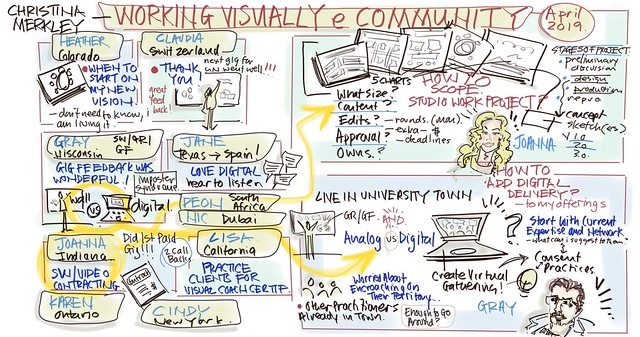 CHRISTINA
MERKLEY
WORKING VISUALLY e COMMUNITY
April
2019.
HEATHER
Colorado
• WHEN TO
START ON
MY NEW
VISION!
- don't need to know, i
am living it.
CLAUDIA
Switzerland
• THANK
YOU!
next gig for
UN went well!!!
great
feed
back!
GRAY
SW/GR/
GF
Wisconsin
GIG FEEDBACK WAS
WONDERFUL!
imposter
syndrome
wall
VS
digital
JANE
Texas → Spain!
LOVE DIGITAL
hear to listen
DEON South
Africa
NIC Dubai
JOANNA
Indiana
SW/VIDEO
CONTRACTING
Did 1st Paid
Gig!!!
2 Call
Backs
contract
LISA
California
PRACTICE
CLIENTS FOR
VISUAL COACH CERTIF.
KAREN
Ontario
CINDY
New York
5 CHARTS
What size?
Content?
Edits? - rounds. (max)
- extra - $
Approval? - deadlines
Owns?
HOW TO
SCOPE
STUDIO WORK PROJECT?
JOANNA
STAGES OF PROJECT
• preliminary
discussion
• design
• production
• repro
concept
sketch(es)
10
20
30
LIVE IN UNIVERSITY TOWN
GR/GF - AND
Analog VS Digital
Worried About
Encroaching On
Their Territory...
• Other Practitioners
Already in Town.
Enough to Go
Around?
Create Virtual
Gathering!
HOW TO
ADD DIGITAL
DELIVERY?
→ to my offerings
?
Start with Current
Expertise and Network
- what can i suggest to them
Consent
Practices.
GRAY